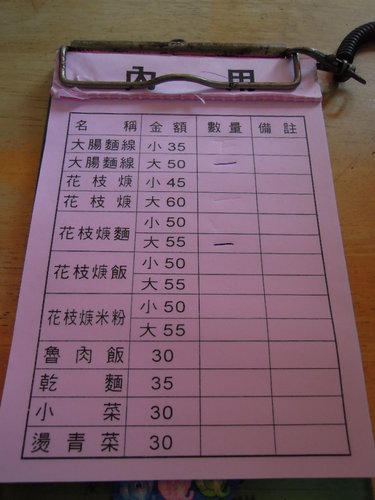 內用
名稱 金額 數量 備註
大腸麵線 小 35
大腸麵線 大 50 一
花枝焿 小 45
花枝焿 大 60
花枝焿麵 小 50
大 55 一
花枝焿飯 小 50
大 55
花枝焿米粉 小 50
大 55
魯肉飯 30
乾麵 35
小菜 30
燙青菜 30